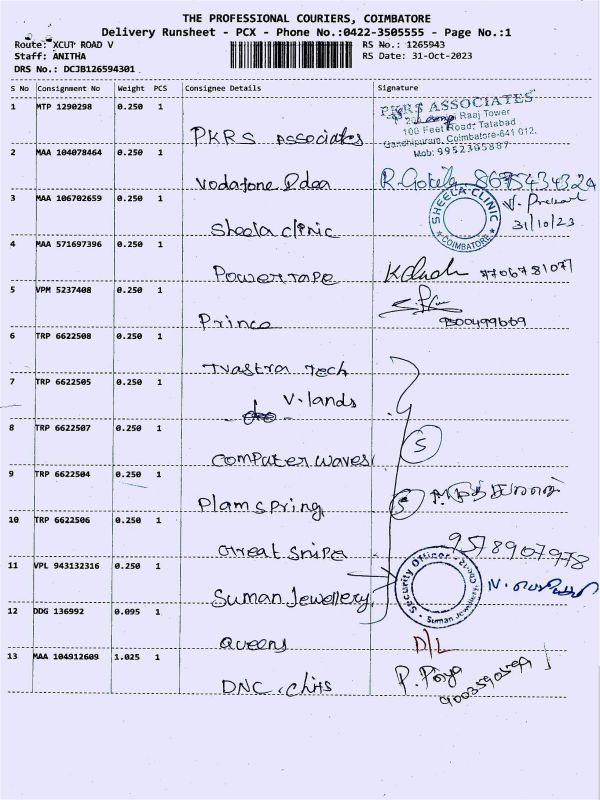 THE PROFESSIONAL COURIERS, COIMBATORE
Delivery Runsheet - PCX - Phone No.:0422-3505555 - Page No.:1
Route: XCUT ROAD V
RS No.: 1265943
Staff: ANITHA
RS Date: 31-Oct-2023
DRS No.: DCJB126594301
S No Consignment No Weight PCS Consignee Details Signature
1 MTP 1290298 0.250 1
PKRS ASSOCIATES
Raaj Tower
100 Feet Road, Tatabad
Gandhipuram, Coimbatore-641 012.
Mob: 9952305887
PKRS Associates
2 MAA 104078464 0.250 1
Vodafone Idea
8675434324
3 MAA 106702659 0.250 1
Sheela clinic
SHEELA CLINIC
COIMBATORE
31/10/23
4 MAA 571697396 0.250 1
Powertape
7706781071
5 VPM 5237408 0.250 1
Prince
9500499669
6 TRP 6622508 0.250 1
Tvastra Tech
7 TRP 6622505 0.250 1
V-lands
8 TRP 6622507 0.250 1
Computer waves
5
9 TRP 6622504 0.250 1
Plam spring
5
10 TRP 6622506 0.250 1
Great Snipe
9578907978
11 VPL 943132316 0.250 1
Suman Jewellery
Security Officer
Suman Jewellery, Cbe-12
12 DDG 136992 0.095 1
Queens
D/L
13 MAA 104912609 1.025 1
DNC. chits
P. Priya